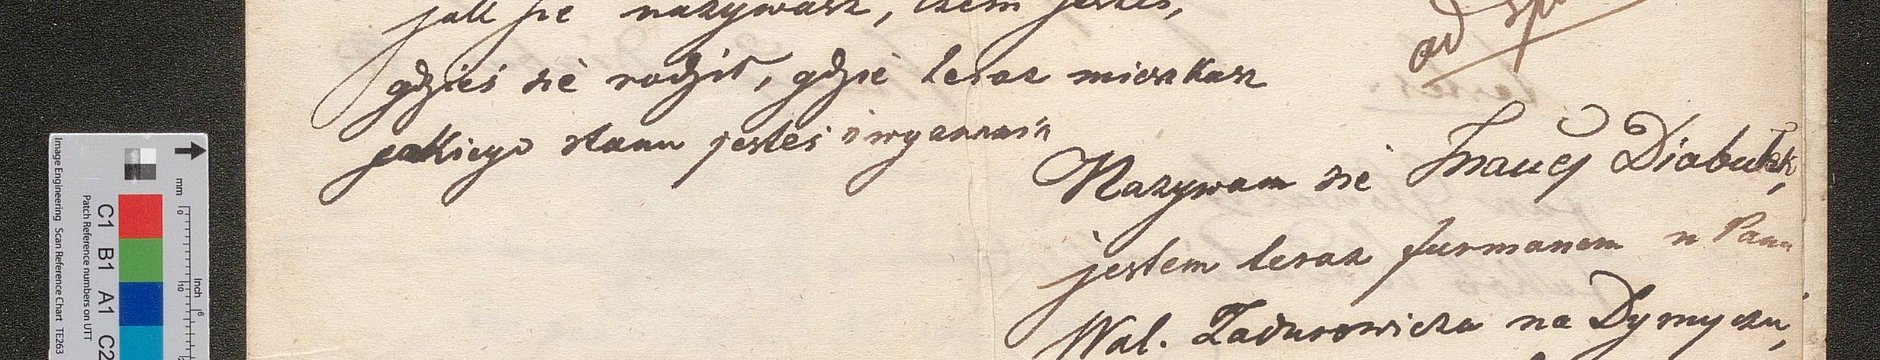 jak się nazywasz, czem jesteś,
gdzieś się rodził, gdzie teraz mieszkasz
jakiego stanu jesteś i wyznania
od
Nazywam się Diabulak,
jestem teraz furmanem u Pana
Wal. Zadurowicza na Dymyczu,
Image Engineering Scan Reference Chart TE263
Patch Reference numbers on UTT
C1 B1 A1 C2
mm
0
10
Inch